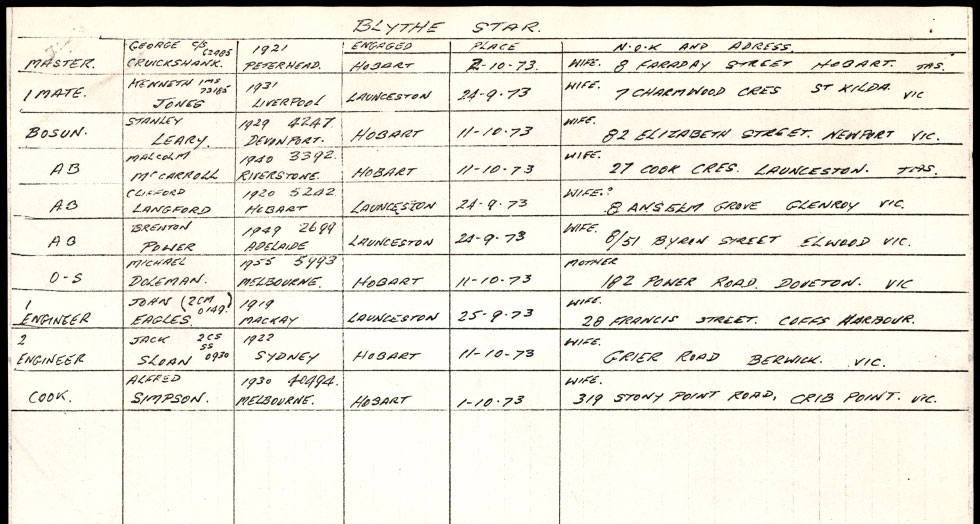 BLYTHE STAR.
GEORGE C/S C2985 1921 ENGAGED PLACE N.O.K AND ADRESS.
MASTER. CRUICKSHANK. PETERHEAD. HOBART 2-10-73. WIFE. 8 FARADAY STREET HOBART. TAS.
KENNETH 1MS 73185 1931 WIFE.
1 MATE. JONES LIVERPOOL LAUNCESTON 24-9-73 7 CHARMWOOD CRES ST KILDA. VIC
STANLEY 1929 4247. WIFE.
BOSUN. LEARY. DEVONPORT. HOBART 11-10-73 82 ELIZABETH STREET. NEWPORT VIC.
MALCOLM 1940 3392. WIFE.
AB McCARROLL RIVERSTONE. HOBART 11-10-73 27 COOK CRES. LAUNCESTON. TAS.
CLIFFORD 1920 5242 WIFE.
AB LANGFORD HOBART LAUNCESTON 24-9-73 8 ANSELM GROVE GLENROY VIC.
BRENTON 1949 2699 WIFE.
AB POWER ADELAIDE LAUNCESTON 24-9-73 8/51 BYRON STREET ELWOOD VIC.
MICHAEL 1955 5993 MOTHER
O-S DOLEMAN. MELBOURNE. HOBART 11-10-73 182 POWER ROAD. DOVETON. VIC
1 JOHN (2CM 0149.) 1919 WIFE.
ENGINEER EAGLES. MACKAY LAUNCESTON 25-9-73 28 FRANCIS STREET. COFFS HARBOUR.
2 JACK 2CS SS 0930 1922 WIFE.
ENGINEER SLOAN SYDNEY HOBART 11-10-73 GRIER ROAD BERWICK. VIC.
ALFRED 1930 40494. WIFE.
COOK. SIMPSON. MELBOURNE. HOBART 1-10-73 319 STONY POINT ROAD, CRIB POINT. VIC.